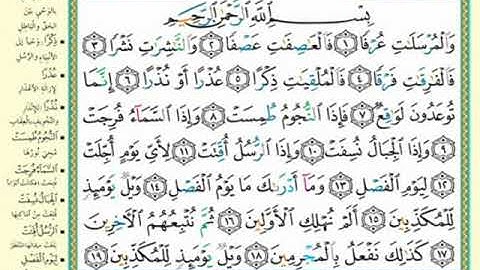 بِسْمِ ٱللَّهِ ٱلرَّحْمَٰنِ ٱلرَّحِيمِ
وَٱلْمُرْسَلَٰتِ عُرْفًا ١ فَٱلْعَٰصِفَٰتِ عَصْفًا ٢ وَٱلنَّٰشِرَٰتِ نَشْرًا ٣
فَٱلْفَٰرِقَٰتِ فَرْقًا ٤ فَٱلْمُلْقِيَٰتِ ذِكْرًا ٥ عُذْرًا أَوْ نُذْرًا ٦ إِنَّمَا
تُوعَدُونَ لَوَٰقِعٌ ٧ فَإِذَا ٱلنُّجُومُ طُمِسَتْ ٨ وَإِذَا ٱلسَّمَآءُ فُرِجَتْ
٩ وَإِذَا ٱلْجِبَالُ نُسِفَتْ ١٠ وَإِذَا ٱلرُّسُلُ أُقِّتَتْ ١١ لِأَىِّ يَوْمٍ أُجِّلَتْ
١٢ لِيَوْمِ ٱلْفَصْلِ ١٣ وَمَآ أَدْرَىٰكَ مَا يَوْمُ ٱلْفَصْلِ ١٤ وَيْلٌ يَوْمَئِذٍ
لِّلْمُكَذِّبِينَ ١٥ أَلَمْ نُهْلِكِ ٱلْأَوَّلِينَ ١٦ ثُمَّ نُتْبِعُهُمُ ٱلْءَاخِرِينَ
١٧ كَذَٰلِكَ نَفْعَلُ بِٱلْمُجْرِمِينَ ١٨ وَيْلٌ يَوْمَئِذٍ لِّلْمُكَذِّبِينَ ١٩
ذِكْرًا
عُذْرًا
نُذْرًا
النُّجُومُ طُمِسَتْ
السَّمَآءُ فُرِجَتْ
الْجِبَالُ نُسِفَتْ
الرُّسُلُ أُقِّتَتْ
لِيَوْمِ الْفَصْلِ